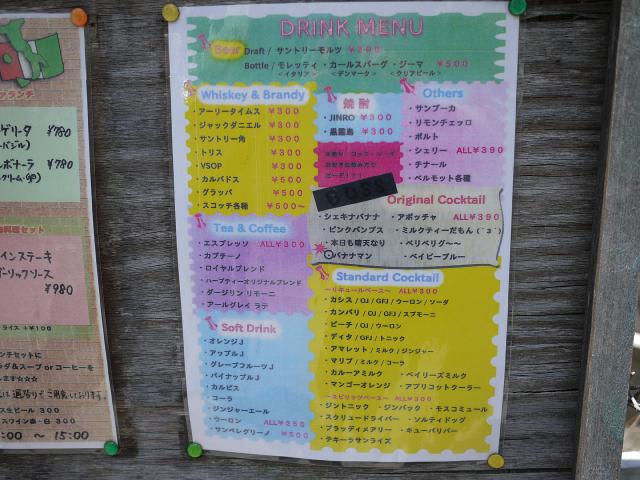 DRINK MENU
Beer Draft / サントリーモルツ ¥390
Bottle / モレッティ ・カールスバーグ ・ジーマ ¥500
<イタリア> <デンマーク> <クリアビール>
Whiskey & Brandy
・アーリータイムス ¥300
・ジャックダニエル ¥300
・サントリー角 ¥300
・トリス ¥300
・VSOP ¥300
・カルバドス ¥500
・グラッパ ¥500
・スコッチ各種 ¥500～
焼酎
・JINRO ¥300
・黒霧島 ¥300
Others
・サンブーカ
・リモンチェッロ
・ポルト
・シェリー ALL¥390
・チナール
・ベルモット各種
Original Cocktail
・シェキナバナナ ・アポッチャ ALL¥390
・ピンクパンプス ・ミルクティーだもん(｀3´)
・本日も晴天なり ・ベリベリグ～～
・バナナマン ・ベイビーブルー
Tea & Coffee
・エスプレッソ ALL¥300
・カプチーノ
・ロイヤルブレンド
・ハーブティーオリジナルブレンド
・ダージリン リモーニ
・アールグレイ ラテ
Soft Drink
・オレンジJ
・アップルJ
・グレープフルーツJ
・パイナップルJ
・カルピス
・コーラ
・ジンジャーエール
・ウーロン ALL¥250
・サンペレグリーノ ¥500
Standard Cocktail
～リキュールベース～ ALL¥300
・カシス / OJ / GFJ / ウーロン / ソーダ
・カンパリ / OJ / GFJ / スプモーニ
・ピーチ / OJ / ウーロン
・ディタ / GFJ / トニック
・アマレット / ミルク / ジンジャー
・マリブ / ミルク / コーラ
・カルーアミルク ・ベイリーズミルク
・マンゴーオレンジ ・アプリコットクーラー
～スピリッツベース～ ALL¥300
・ジントニック ・ジンバック ・モスコミュール
・スクリュードライバー ・ソルティドッグ
・ブラッディメアリー ・キューバリバー
・テキーラサンライズ
ランチ
ゲリータ ¥780
ボナーラ ¥780
セット
インステーキ
ーリックソース
¥980
ライス +¥100
ンチセットに
ラダ&スープ or コーヒーを
します☆☆☆
生ビール 300
スワイン赤・白 300
:00 ～ 15:00